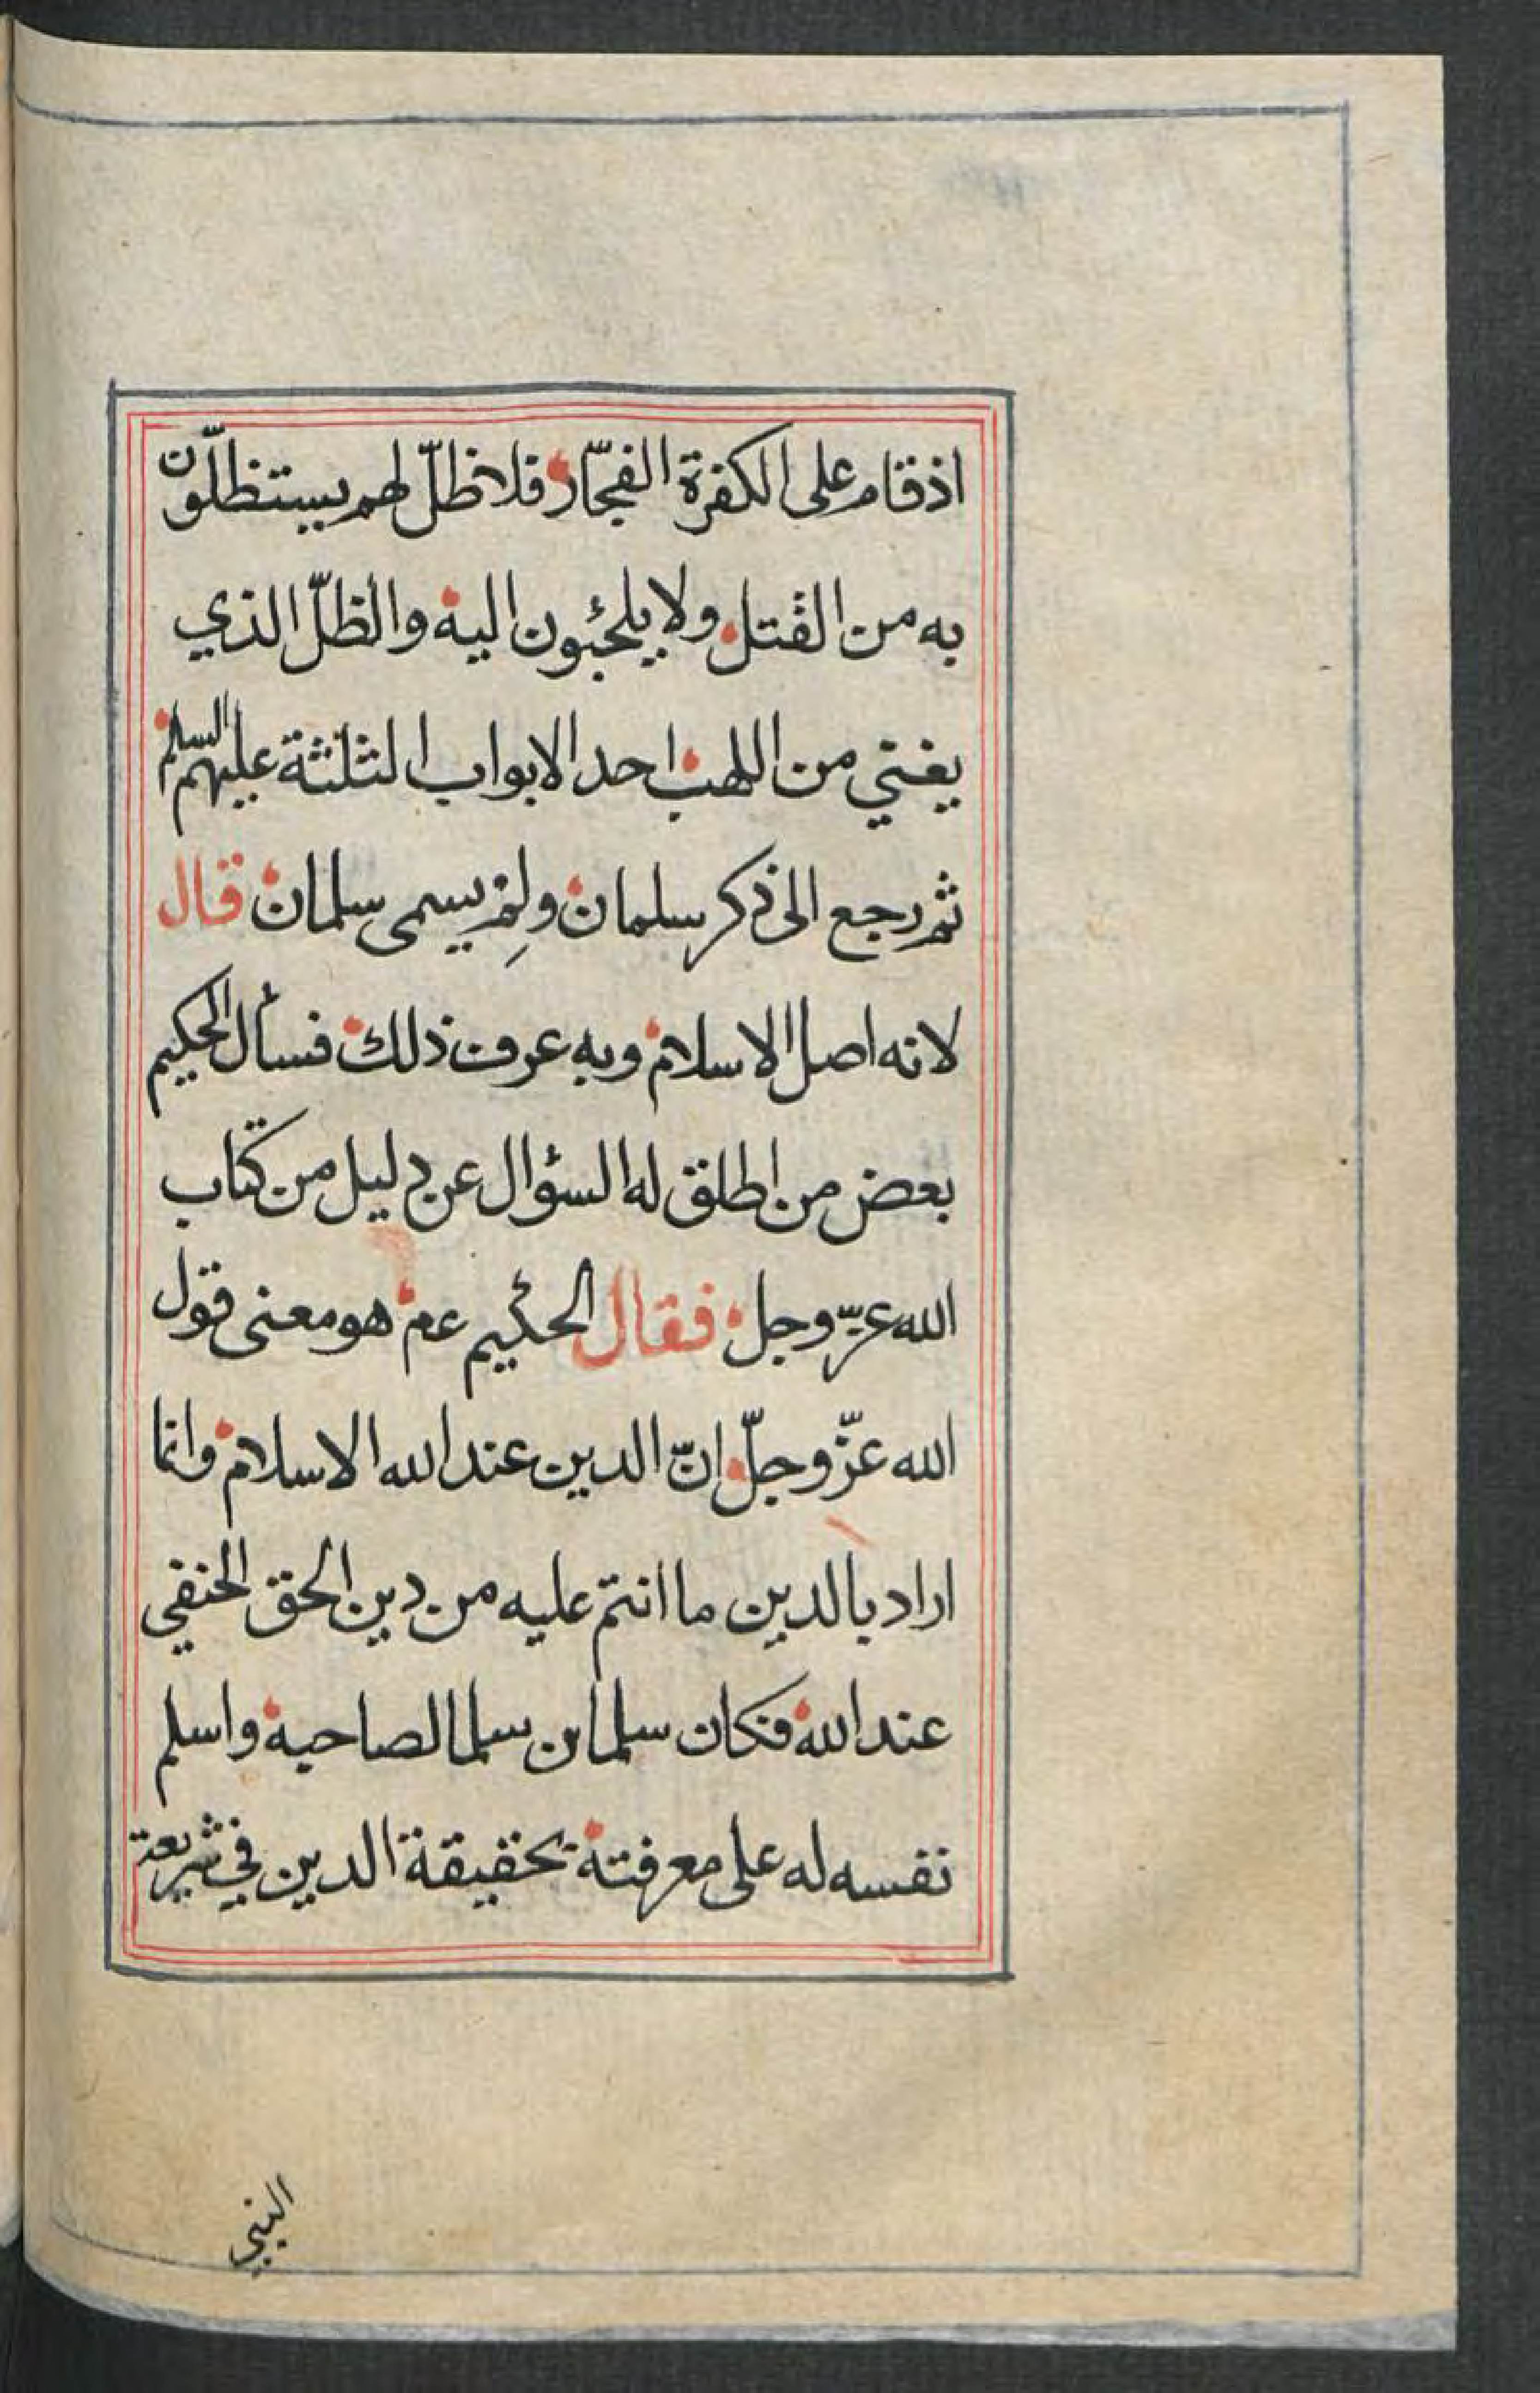 اذ قام على الكفرة الفجّار فلا ظلّ لهم يستظلّون
به من القتل ولا يلجئون اليه والظلّ الذي
يغني من اللهب احد الابواب الثلثة عليهم السلم
ثم رجع الى ذكر سلمان ولِمَ يسمى سلمان قال
لانه اصل الاسلام وبه عرف ذلك فسأل الحكيم
بعض من اطلق له السؤال عن دليل من كتاب
الله عزّ وجل فقال الحكيم عم هو معنى قول
الله عزّ وجلّ انّ الدين عند الله الاسلام وانما
اراد بالدين ما انتم عليه من دين الحق الحنفي
عند الله فكان سلمان سلما لصاحبه واسلم
نفسه له على معرفته بحقيقة الدين في شريعة
النبي